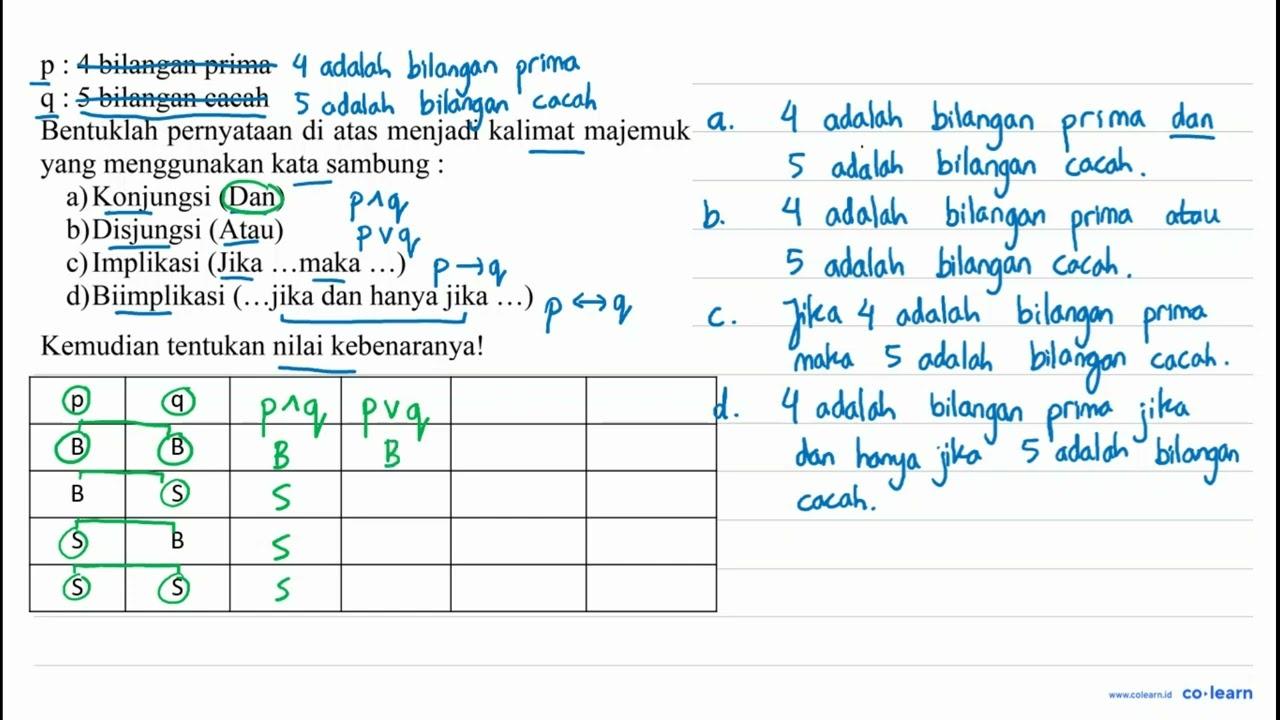 p : 4 bilangan prima 4 adalah bilangan prima
q : 5 bilangan cacah 5 adalah bilangan cacah
Bentuklah pernyataan di atas menjadi kalimat majemuk
yang menggunakan kata sambung :
a) Konjungsi (Dan) p ∧ q
b) Disjungsi (Atau) p ∨ q
c) Implikasi (Jika …maka …) p → q
d) Biimplikasi (…jika dan hanya jika …) p ↔ q
Kemudian tentukan nilai kebenaranya!
p q p ∧ q p ∨ q
B B B B
B S S
S B S
S S S
a. 4 adalah bilangan prima dan
5 adalah bilangan cacah.
b. 4 adalah bilangan prima atau
5 adalah bilangan cacah.
c. Jika 4 adalah bilangan prima
maka 5 adalah bilangan cacah.
d. 4 adalah bilangan prima jika
dan hanya jika 5 adalah bilangan
cacah.
www.colearn.id co·learn